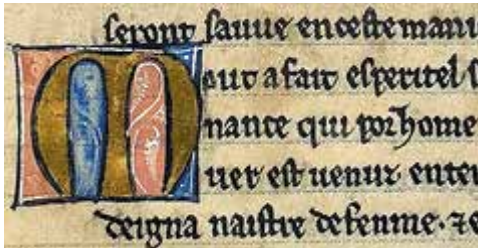 seront sauue en ceste manı
Mout a fait esperitel s
nance qui por home
uer est uenuz enter
deigna naistre de fenme. ⁊ e